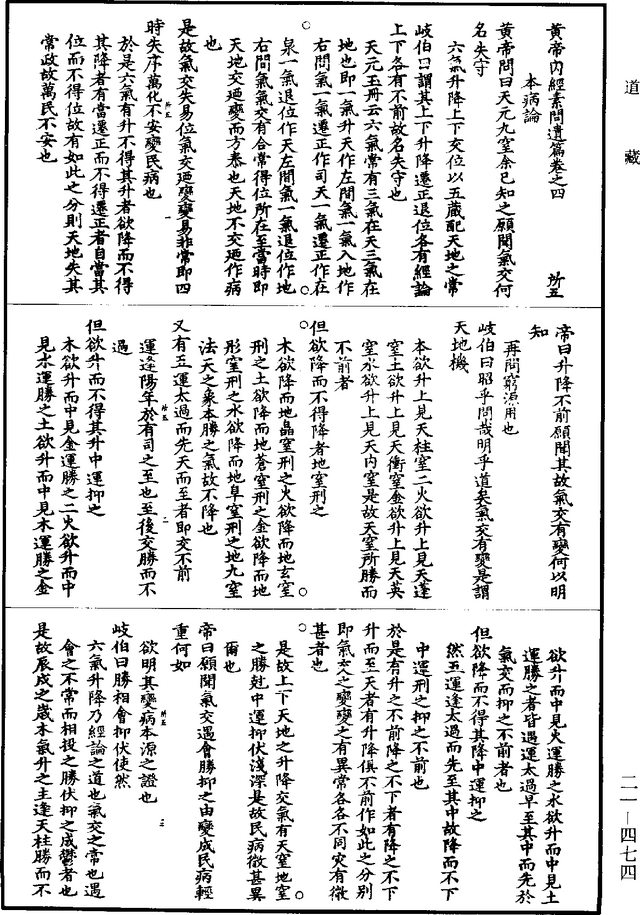 道藏
黃帝內經素問遺篇卷之四
所五
本病論
黃帝問曰天元九窒余已知之願聞氣交何
名失守
六氣升降上下交位以五藏配天地之常
岐伯曰謂其上下升降遷正退位各有經論
上下各有不前故名失守也
天元玉冊云六氣常有三氣在天三氣在
地也即一氣升天作左間氣一氣入地作
右間氣一氣遷正作司天一氣遷正作在
泉一氣退位作天左間氣一氣退位作地
右間氣氣交有合常得位所在至當時即
天地交迺變而方泰也天地不交迺作病
也
是故氣交失易位氣交迺變變易非常即四
時失序萬化不安變民病也
於是六氣有升不得其升者欲降而不得
其降者有當遷正而不得遷正者自當其
位而不得位故有如此之分則天地失其
常政故萬民不安也
帝曰升降不前願聞其故氣交有變何以明
知
再問窮源用也
岐伯曰昭乎問哉明乎道矣氣交有變是謂
天地機
木欲升上見天柱窒二火欲升上見天蓬
窒土欲升上見天衝窒金欲升上見天英
窒水欲升上見天內窒是故天窒所勝而
不前者
但欲降而不得降者地窒刑之
木欲降而地皛窒刑之火欲降而地玄窒
刑之土欲降而地蒼窒刑之金欲降而地
彤窒刑之水欲降而地阜窒刑之地九窒
法天之象本勝之氣故不降也
又有五運太過而先天而至者即交不前
運逢陽年於有司之至也至後交勝而不
過
但欲升而不得其升中運抑之
木欲升而中見金運勝之二火欲升而中
見水運勝之土欲升而中見木運勝之金
欲升而中見火運勝之水欲升而中見土
運勝之者皆遇運太過早至其中而先於
氣交而抑之不前者也
但欲降而不得其降中運抑之
然五運逢太過而先至其中故降而不下
中運刑之抑之不前也
於是有升之不前降之不下者有降之不下
升而至天者有升降俱不前作如此之分別
即氣交之變變之有異常各各不同災有微
甚者也
是故上下天地之升降交氣有天窒地窒
之勝尅中運抑伏淺深是故民病微甚異
爾也
帝曰願聞氣交遇會勝抑之由變成民病輕
重何如
欲明其變病本源之證也
岐伯曰勝相會抑伏使然
六氣升降乃經論之道也氣交之常也遇
會之不常而相投之勝伏抑之成鬱者也
是故辰戌之歲木氣升之主逢天柱勝而不
二一—四七四